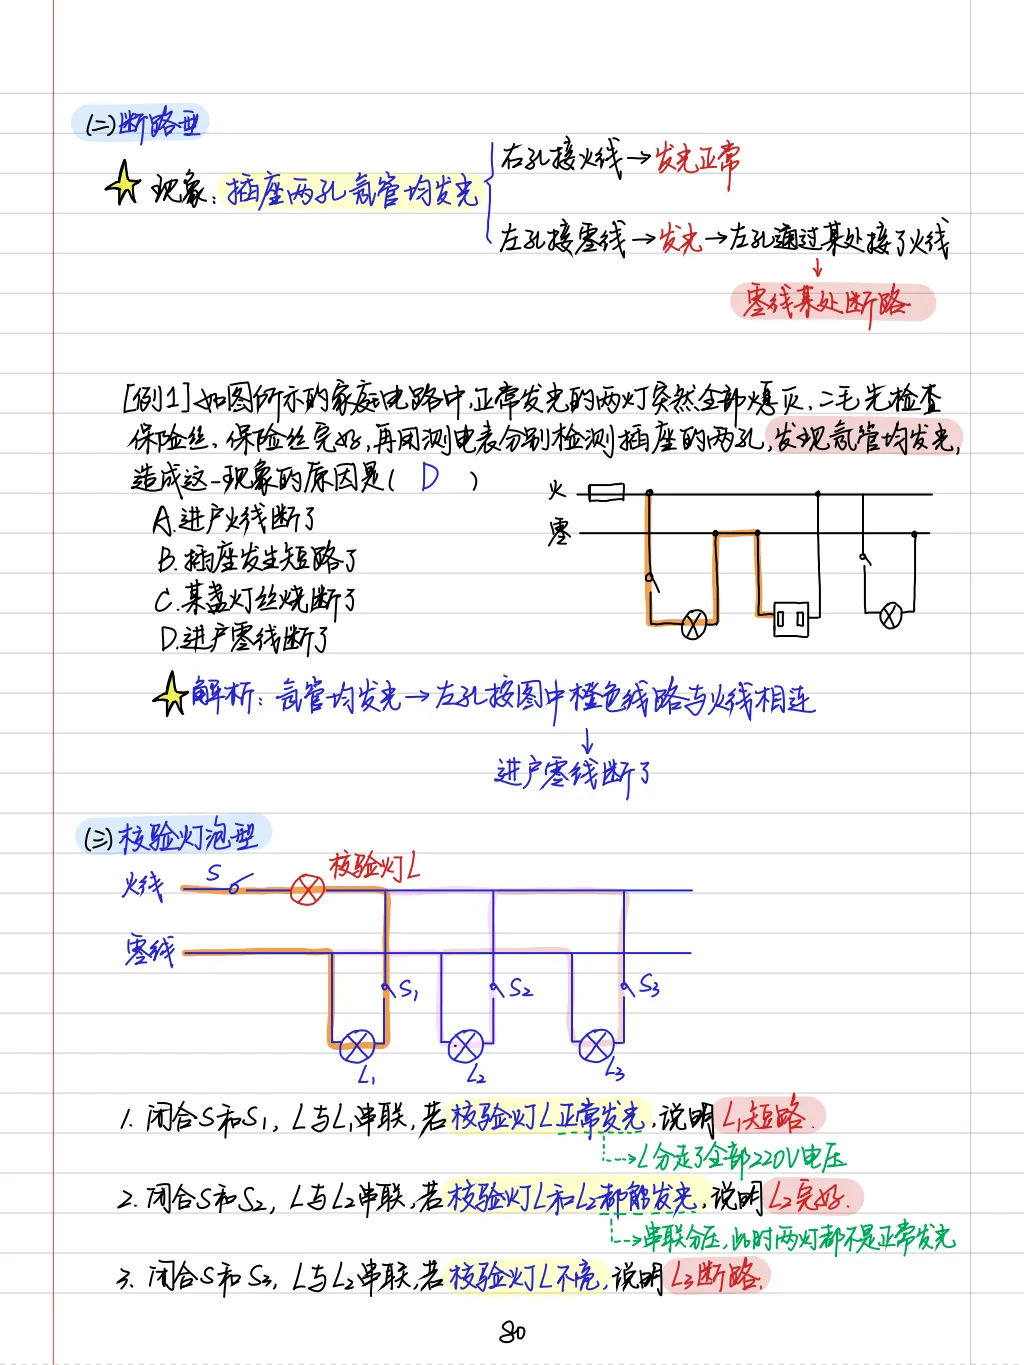 (二)断路型
右孔接火线→发光正常
现象:插座两孔氖管均发光
左孔接零线→发光→左孔通过某处接了火线
零线某处断路.
[例1]如图所示的家庭电路中,正常发光的两灯突然全部熄灭,二毛先检查
保险丝,保险丝完好,再用测电表分别检测插座的两孔,发现氖管均发光,
造成这一现象的原因是( D )
A.进户火线断了
B.插座发生短路了
C.某盏灯丝烧断了
D.进户零线断了
火
零
解析:氖管均发光→左孔按图中橙色线路与火线相连
进户零线断了
(三)校验灯泡型
校验灯L
火线 S
零线
S1 S2 S3
L1 L2 L3
1. 闭合S和S1, L与L1串联,若校验灯L正常发光,说明L1短路.
L分走了全部220V电压
2. 闭合S和S2, L与L2串联,若校验灯L和L2都能发光,说明L2完好.
串联分压,此时两灯都不是正常发光
3. 闭合S和S3, L与L2串联,若校验灯L不亮,说明L3断路.
80